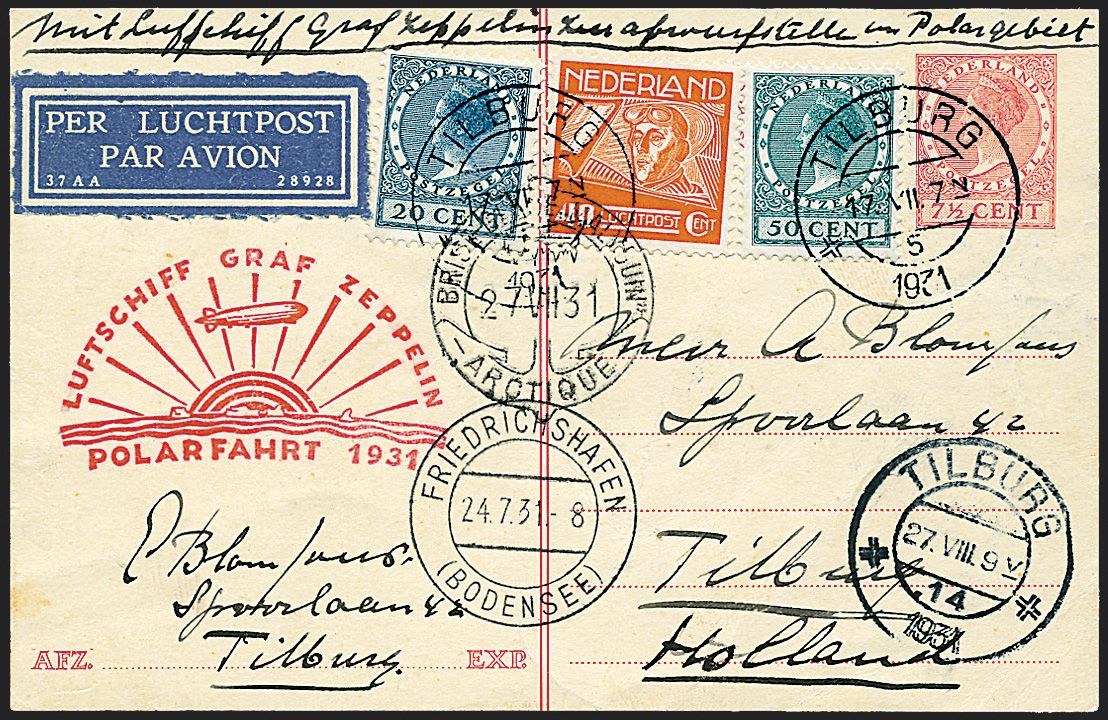 Mit Luftschiff Graf Zeppelin zur abwurfstelle im Polargebiet
PER LUCHTPOST
PAR AVION
37AA 28928
NEDERLAND
POSTZEGEL
20 CENT
NEDERLAND
40 LUCHTPOST CENT
NEDERLAND
POSTZEGEL
50 CENT
NEDERLAND
POSTZEGEL
7½ CENT
TILBURG
1931
TILBURG
5
1931
LUFTSCHIFF GRAF ZEPPELIN
POLARFAHRT 1931
27 VII 31
ARCTIQUE
FRIEDRICHSHAFEN
24.7.31-8
(BODENSEE)
TILBURG
27.VIII.9 V
.14
1931
Mevr A Blomjous
Spoorlaan 42
Tilburg
Holland
Blomjous.
Spoorlaan 42
Tilburg.
AFZ. EXP.